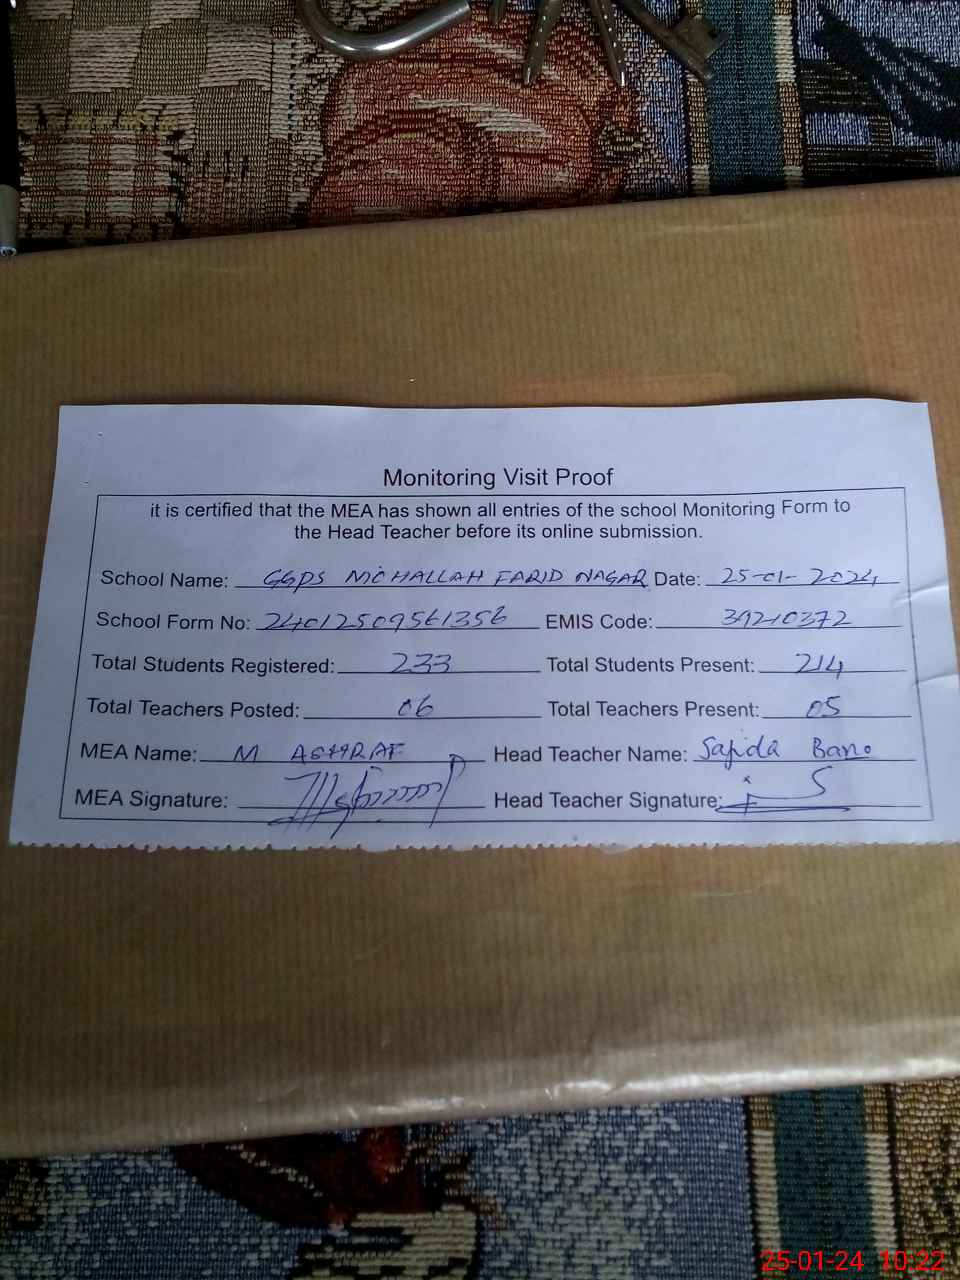 Monitoring Visit Proof
it is certified that the MEA has shown all entries of the school Monitoring Form to
the Head Teacher before its online submission.
School Name: GGPS MOHALLAH FARID NAGAR Date: 25-01-2024
School Form No: 24012509561356 EMIS Code: 39210372
Total Students Registered: 233 Total Students Present: 214
Total Teachers Posted: 06 Total Teachers Present: 05
MEA Name: M ASHRAF Head Teacher Name: Sajida Bano
MEA Signature: Head Teacher Signature:
25-01-24 10:22